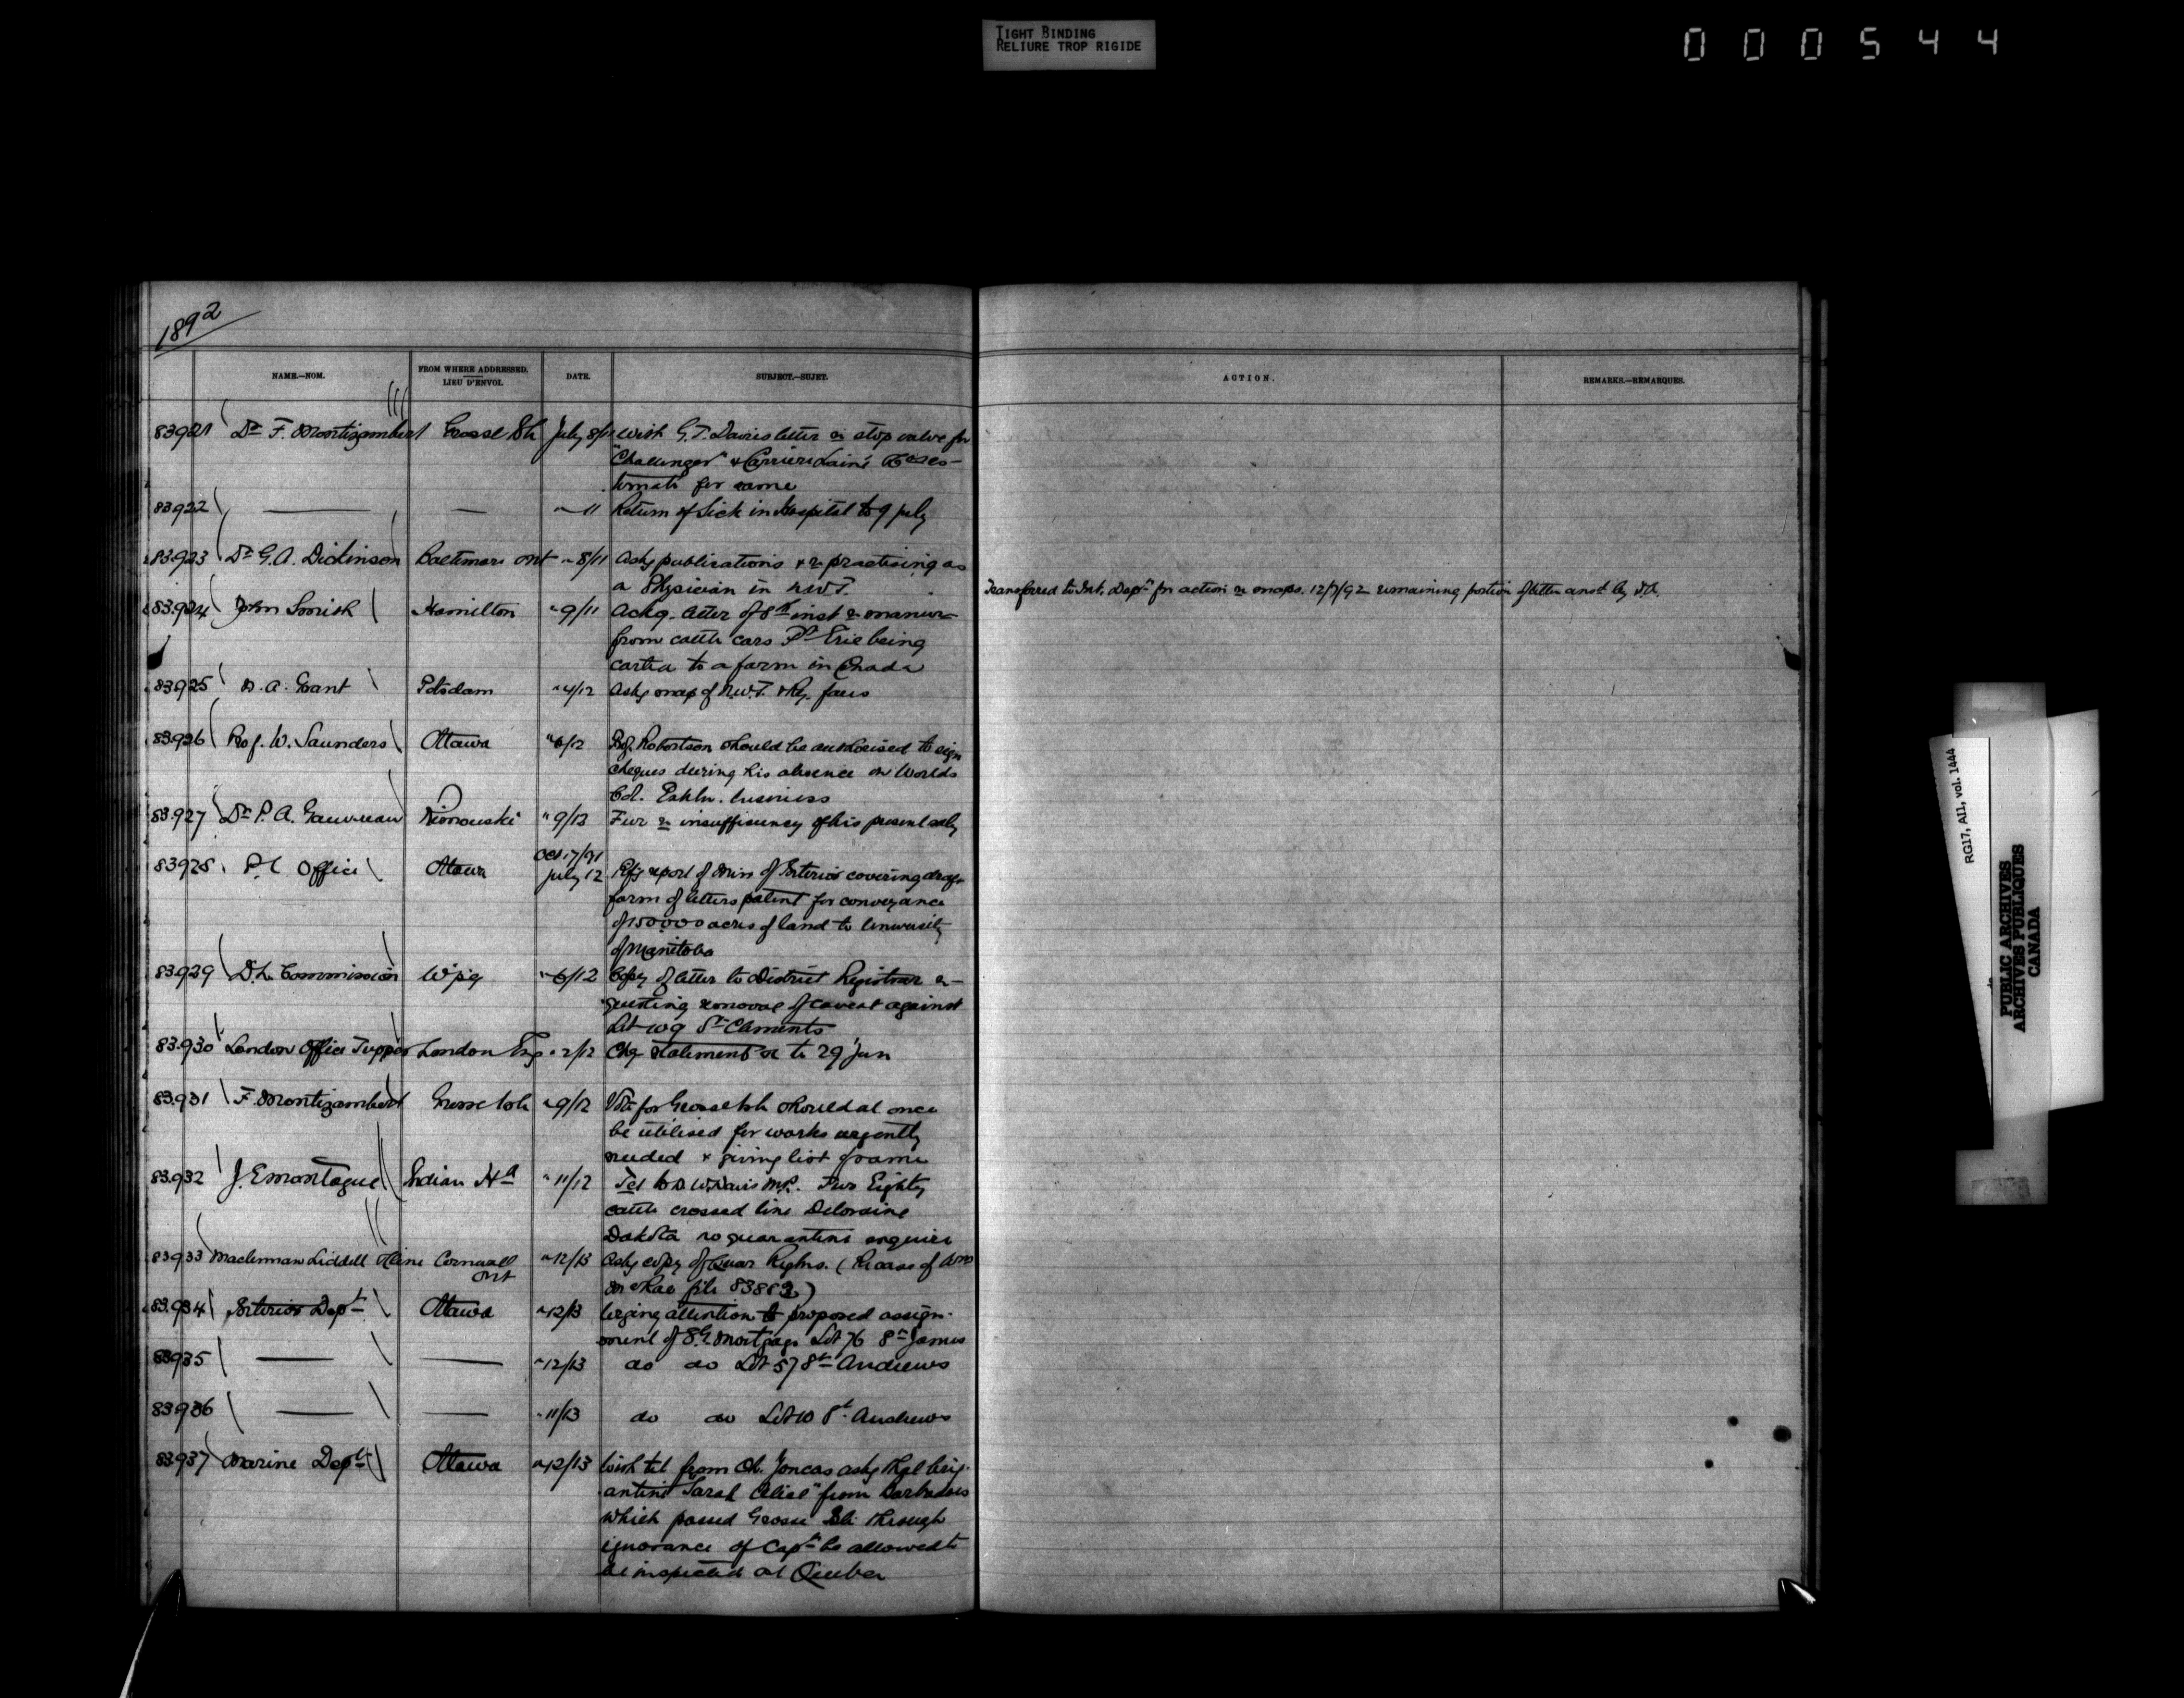 TIGHT BINDING
RELIURE TROP RIGIDE
000544
1892
NAME.—NOM.
FROM WHERE ADDRESSED.
LIEU D'ENVOI.
DATE.
SUBJECT.—SUJET.
ACTION.
REMARKS.—REMARQUES.
83921 Dr F. Montizambert Grosse Isle July 8/11 With G.T. Davies letter re stop valve for
"Challenger" & Carrier Lainé &
for same
83922 — — " 11 Return of Sick in Hospital to 9 July
83923 Dr G.A. Dickinson Baltimore Ont " 8/11 Askg publications & re practising as
a Physician in N.W.T.
Transferred to Int. Dept for action re maps. 12/7/92 remaining portion of letter ansd by
83924 John Smith Hamilton " 9/11 Ackg. letter of 8th inst re manure
from cattle cars Pt Erie being
carted to a farm in Canada
83925 D. A. Grant Potsdam " 4/12 Askg map of N.W.T. & Ry. fares
83926 Prof. W. Saunders Ottawa " 6/12 Prof. Robertson should be authorised to sign
cheques during his absence on Worlds
Col. Exhbn. business
83927 Dr P. A. Gauvreau Rimouski " 9/13 Fur re insufficiency of his present saly
83928 P.C Office Ottawa Oct. 17/91
July 12 Refg report of Min of Interior covering draft
form of letters patent for conveyance
of 150000 acres of land to University
of Manitoba
83929 D.L. Commission Wpg " 6/12 Copy of letter to District Registrar re-
questing removal of caveat against
Lot 109 St Clements
83930 London Office Tupper London Eng " 2/12 statement to 29 Jun
83931 F. Montizambert Grosse Isle " 9/12 Vote for Grosse Isle should at once
be utilised for works urgently
needed & giving list of same
83932 J.E Montague Indian Hd " 11/12 Tel to D. W. Davis M.P. Two Eighty
cattle crossed line Deloraine
Dakota no quarantine enquire
83933 Maclennan Liddell & Cline Cornwall
Ont " 12/13 Askg copy of Quar Regtns. (Re case of
file 83883)
83934 Interior Dept Ottawa " 12/13 Urging attention to proposed assign-
ment of S.G. Mortgage Lot 76 St James
83935 — — " 12/13 do do Lot 57 St Andrews
83936 — — " 11/13 do do Lot 10 St. Andrews
83937 Marine Dept Ottawa " 12/13 With tel from Ch. Joncas askg that brig-
antine "Sarah Alice" from Barbadoes
which passed Grosse Isle through
ignorance of Capt be allowed to
be inspected at Quebec
RG17, AI1, vol. 1444
PUBLIC ARCHIVES
ARCHIVES PUBLIQUES
CANADA